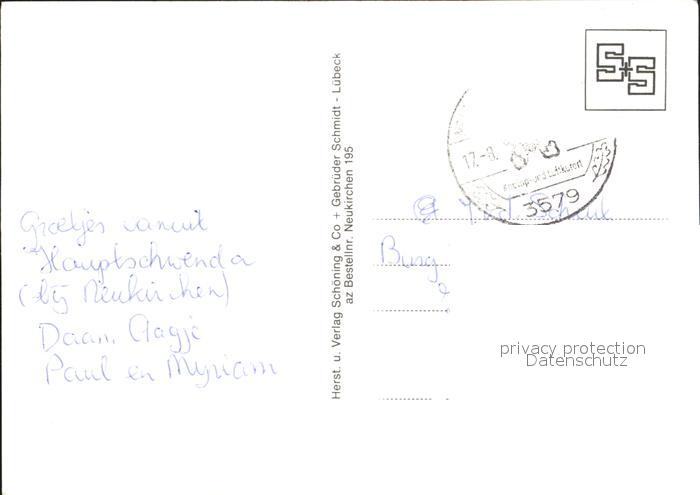 Groetjes vanuit
Hauptschwenda
(bij Neukirchen)
Daan, Aagje
Paul en Myriam
Herst. u. Verlag Schöning & Co + Gebrüder Schmidt - Lübeck
az Bestellnr. Neukirchen 195
S+S
17.-8.
Kneipp- und Luftkurort
3579
Burg
privacy protection
Datenschutz